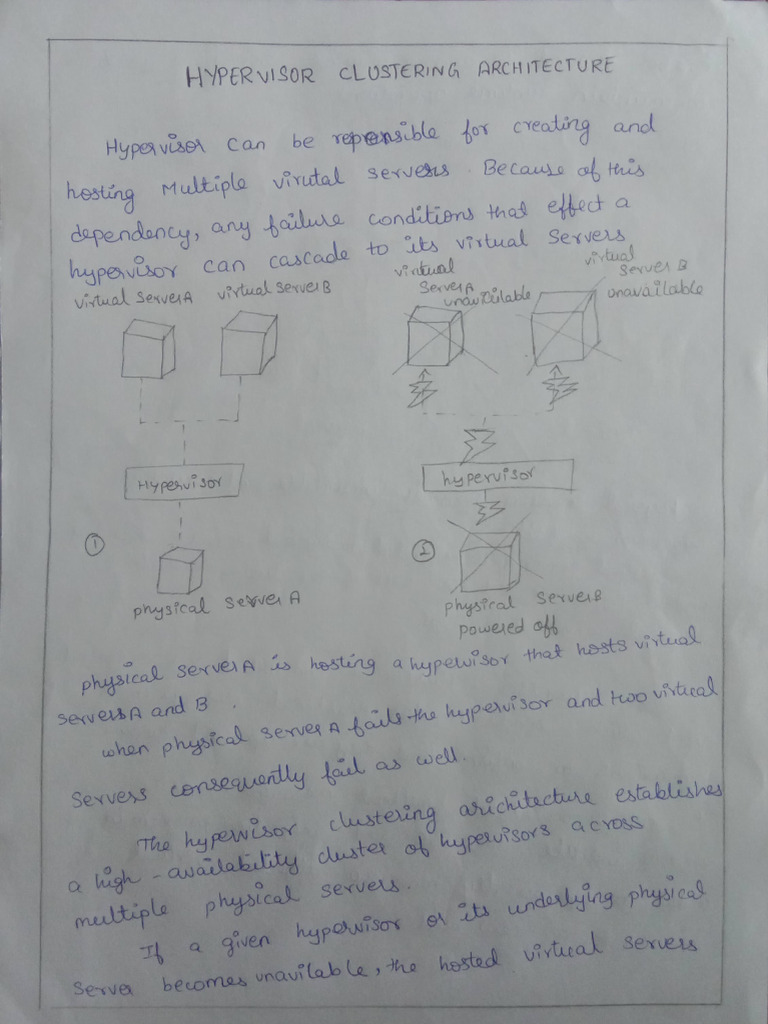 HYPERVISOR CLUSTERING ARCHITECTURE
Hypervisor can be reponsible for creating and
hosting Multiple virutal servers. Because of this
dependency, any failure conditions that effect a
hypervisor can cascade to its virtual servers
virtual Server A
virtual Server B
virtual
Server A
unavailable
virtual
Server B
unavailable
Hypervisor
hypervisor
1
2
physical Server A
physical Server B
powered off
physical server A is hosting a hypervisor that hosts virtual
servers A and B.
when physical server A fails the hypervisor and two virtical
servers consequently fail as well.
The hypervisor clustering arichitecture establishes
a high-availability cluster of hypervisors across
multiple physical servers.
If a given hypervisor or its underlying physical
server becomes unavilable, the hosted virtual servers